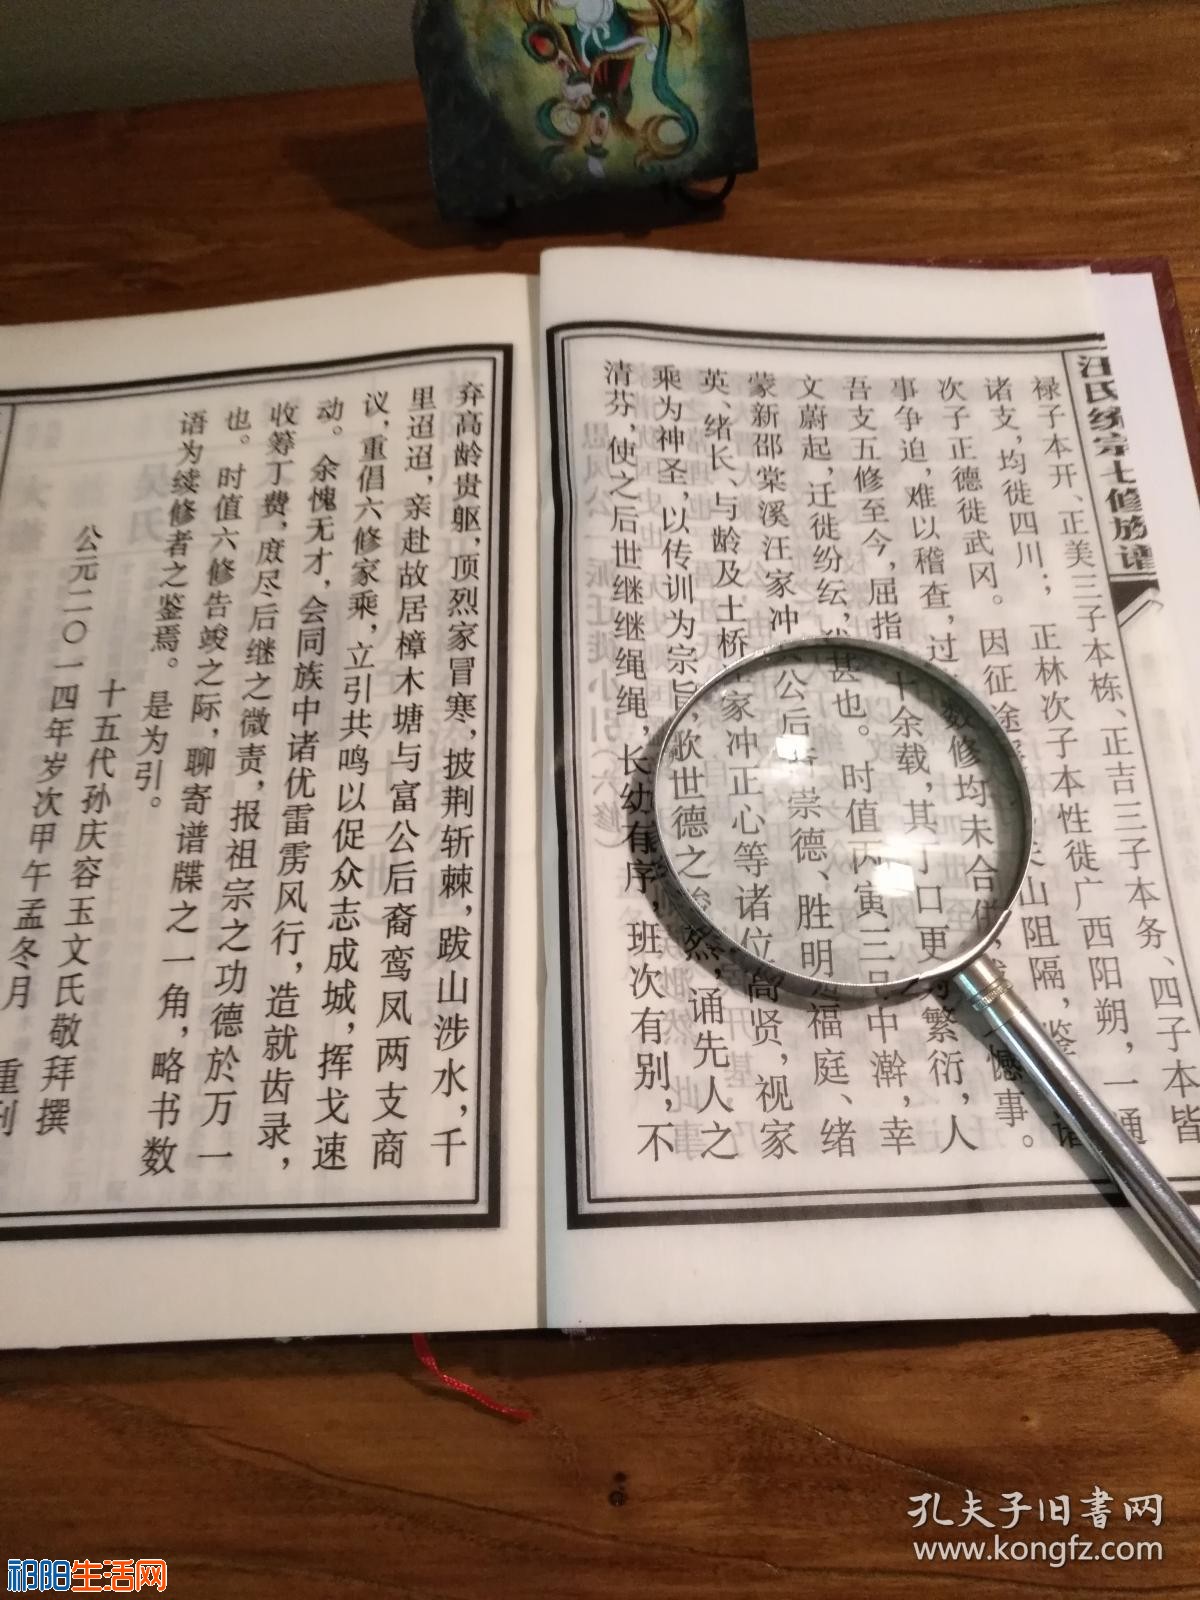 汪氏统宗七修族谱
禄子本开、正美三子本栋、正吉三子本务、四子本皆
诸支，均徙四川；正林次子本性徙广西阳朔，一通
次子正德徙武冈。因征途
山阻隔，
事争迫，难以稽查，过
数修均未合
憾事。
吾支五修至今，屈指
十余载，其丁口更
繁衍，人
文蔚起，迁徙纷纭，
甚也。时值丙寅三月中澣，幸
蒙新邵棠溪汪家冲
公后
崇德、胜明
福庭、绪
英、绪长、与龄及土桥
家冲正心等诸位高贤，视家
乘为神圣，以传训为宗旨，歌世德之
，诵先人之
清芬，使之后世继继绳绳，长幼有序，班次有别，不
弃高龄贵躯，顶烈家冒寒，披荆斩棘，跋山涉水，千
里迢迢，亲赴故居樟木塘与富公后裔鸾凤两支商
议，重倡六修家乘，立引共鸣以促众志成城，挥戈速
动。余愧无才，会同族中诸优雷雳风行，造就齿录，
收筹丁费，庶尽后继之微责，报祖宗之功德於万一
也。时值六修告竣之际，聊寄谱牒之一角，略书数
语为续修者之鉴焉。是为引。
十五代孙庆容玉文氏敬拜撰
公元二〇一四年岁次甲午孟冬月 重刊
孔夫子旧书网
www.kongfz.com
祁阳生活网